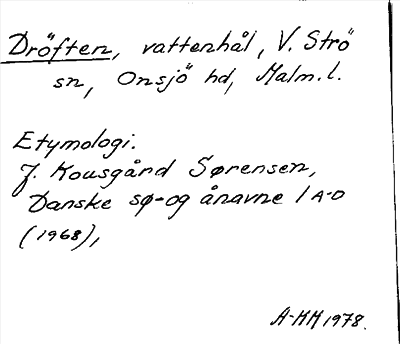 Dröften, vattenhål, V. Strö
sn, Onsjö hd, Malm.l.
Etymologi.
J. Kousgård Sørensen,
Danske sø-og ånavne 1 A-D
(1968),
A-MM 1978.